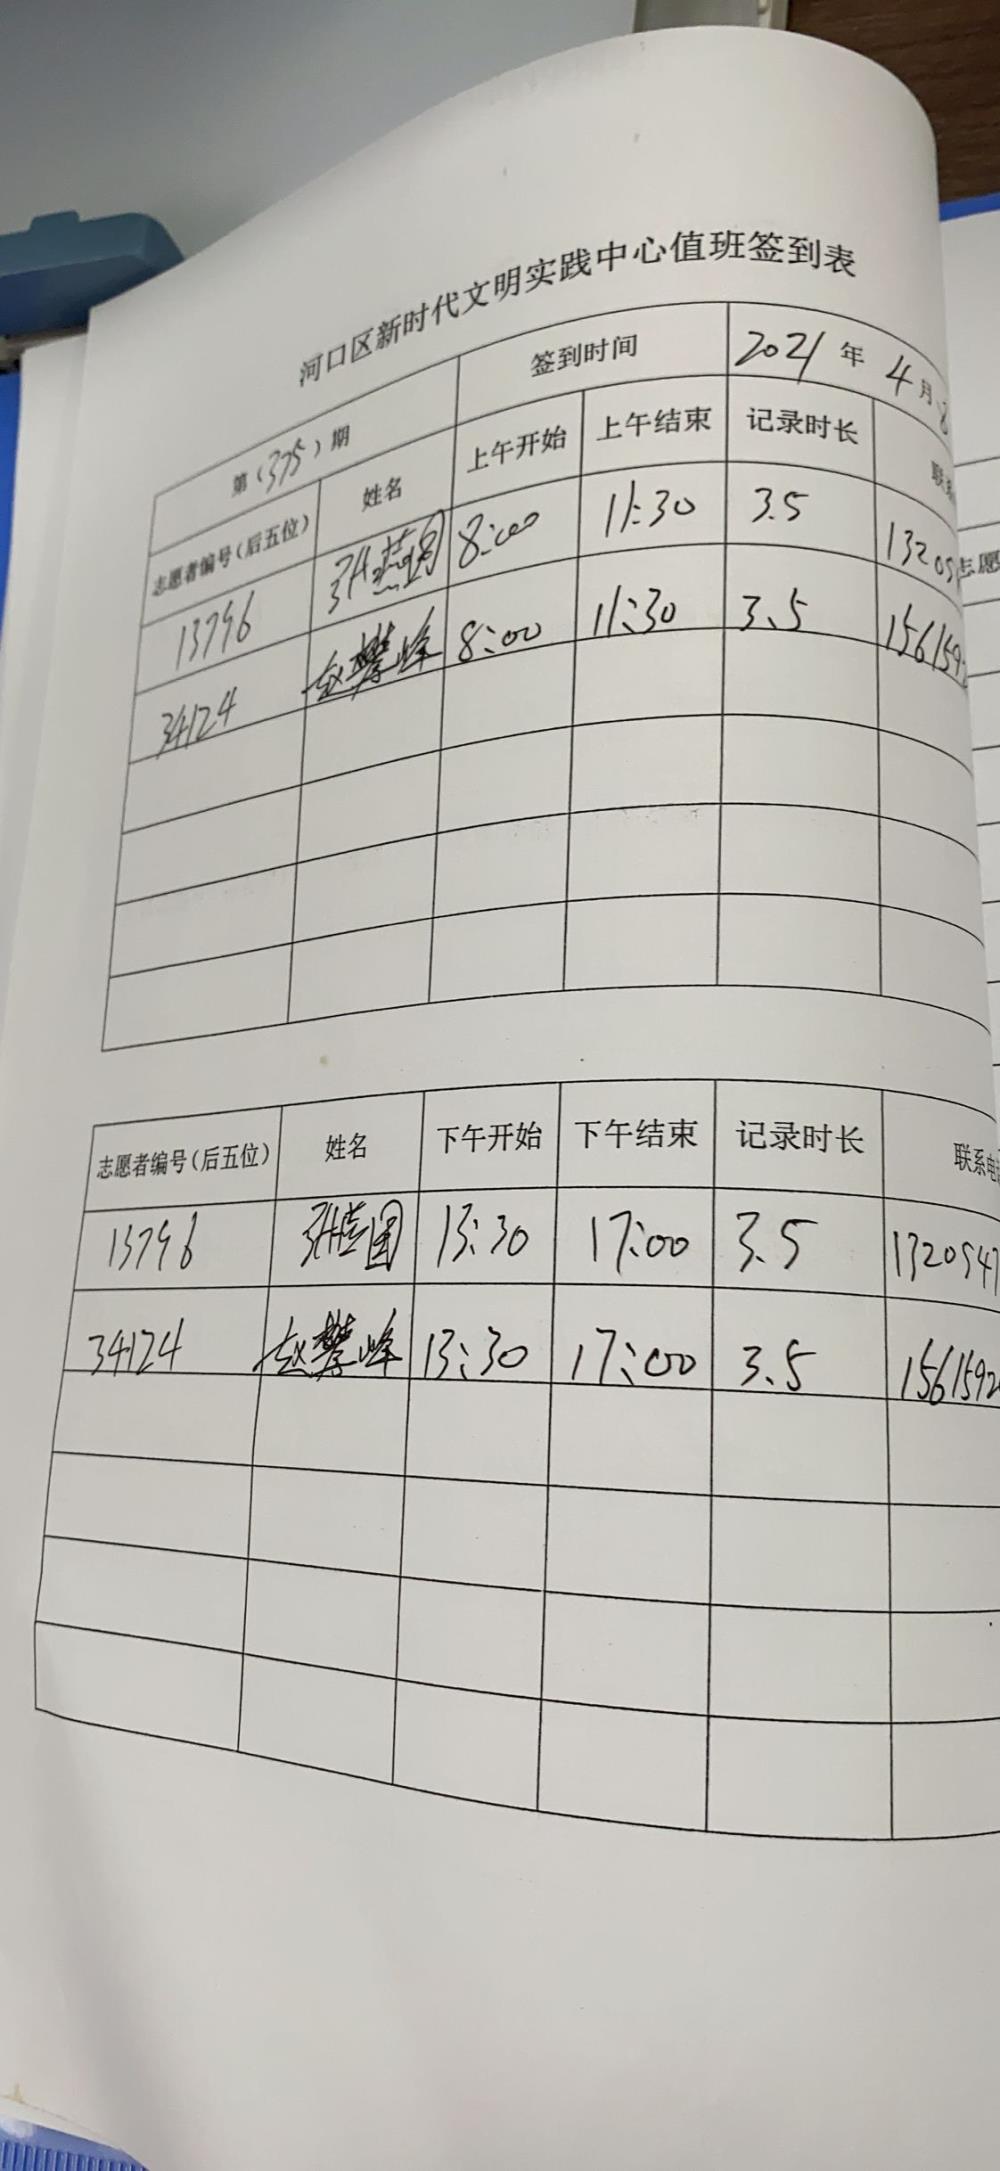 河口区新时代文明实践中心值班签到表
第（375）期 签到时间 2021年4月8
志愿者编号（后五位） 姓名 上午开始 上午结束 记录时长 联系
13796 张 8:00 11:30 3.5 13205
34124 赵攀峰 8:00 11:30 3.5 1561592
志愿者编号（后五位） 姓名 下午开始 下午结束 记录时长 联系电话
13796 张 13:30 17:00 3.5 1320547
34124 赵攀峰 13:30 17:00 3.5 1561592
志愿